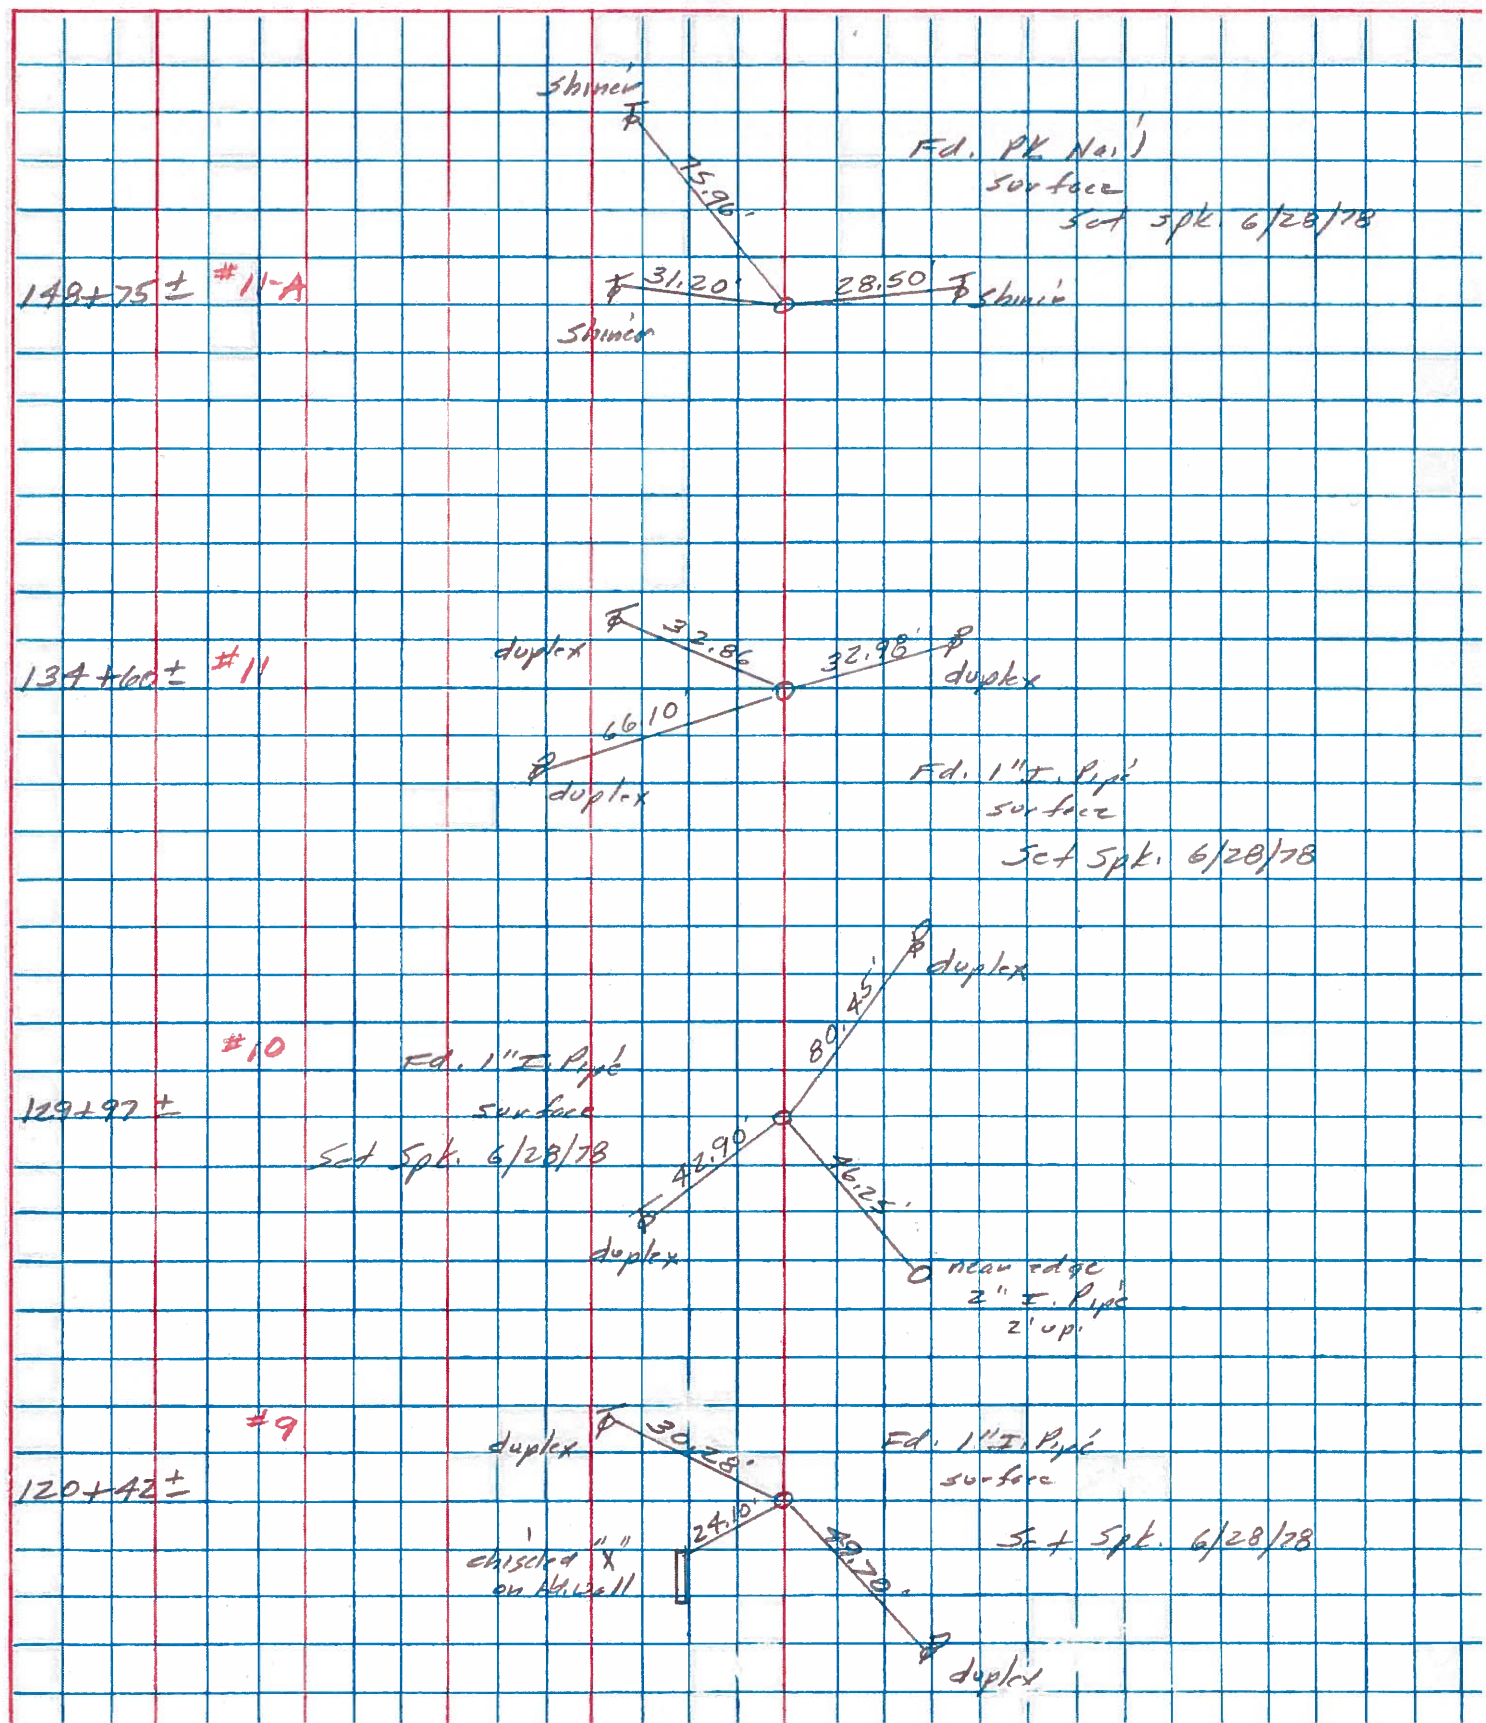 shiner
75.96'
Fd. PK Nail
surface
Set spk. 6/28/78
148+75± #11-A
31.20'
28.50'
shiner
shiner
duplex
32.86
32.98'
duplex
134+60± #11
66.10'
duplex
Fd. 1" I. Pipe
surface
Set Spk. 6/28/78
duplex
80.45'
#10
Fd. 1" I. Pipe
129+97±
surface
Set Spk. 6/28/78
42.90'
76.25'
duplex
near edge
2" I. Pipe
2' up.
#9
duplex
30.28'
Fd. 1" I. Pipe
surface
120+42±
24.10'
Set Spk. 6/28/78
chiseled "X"
on Hd.wall
duplex